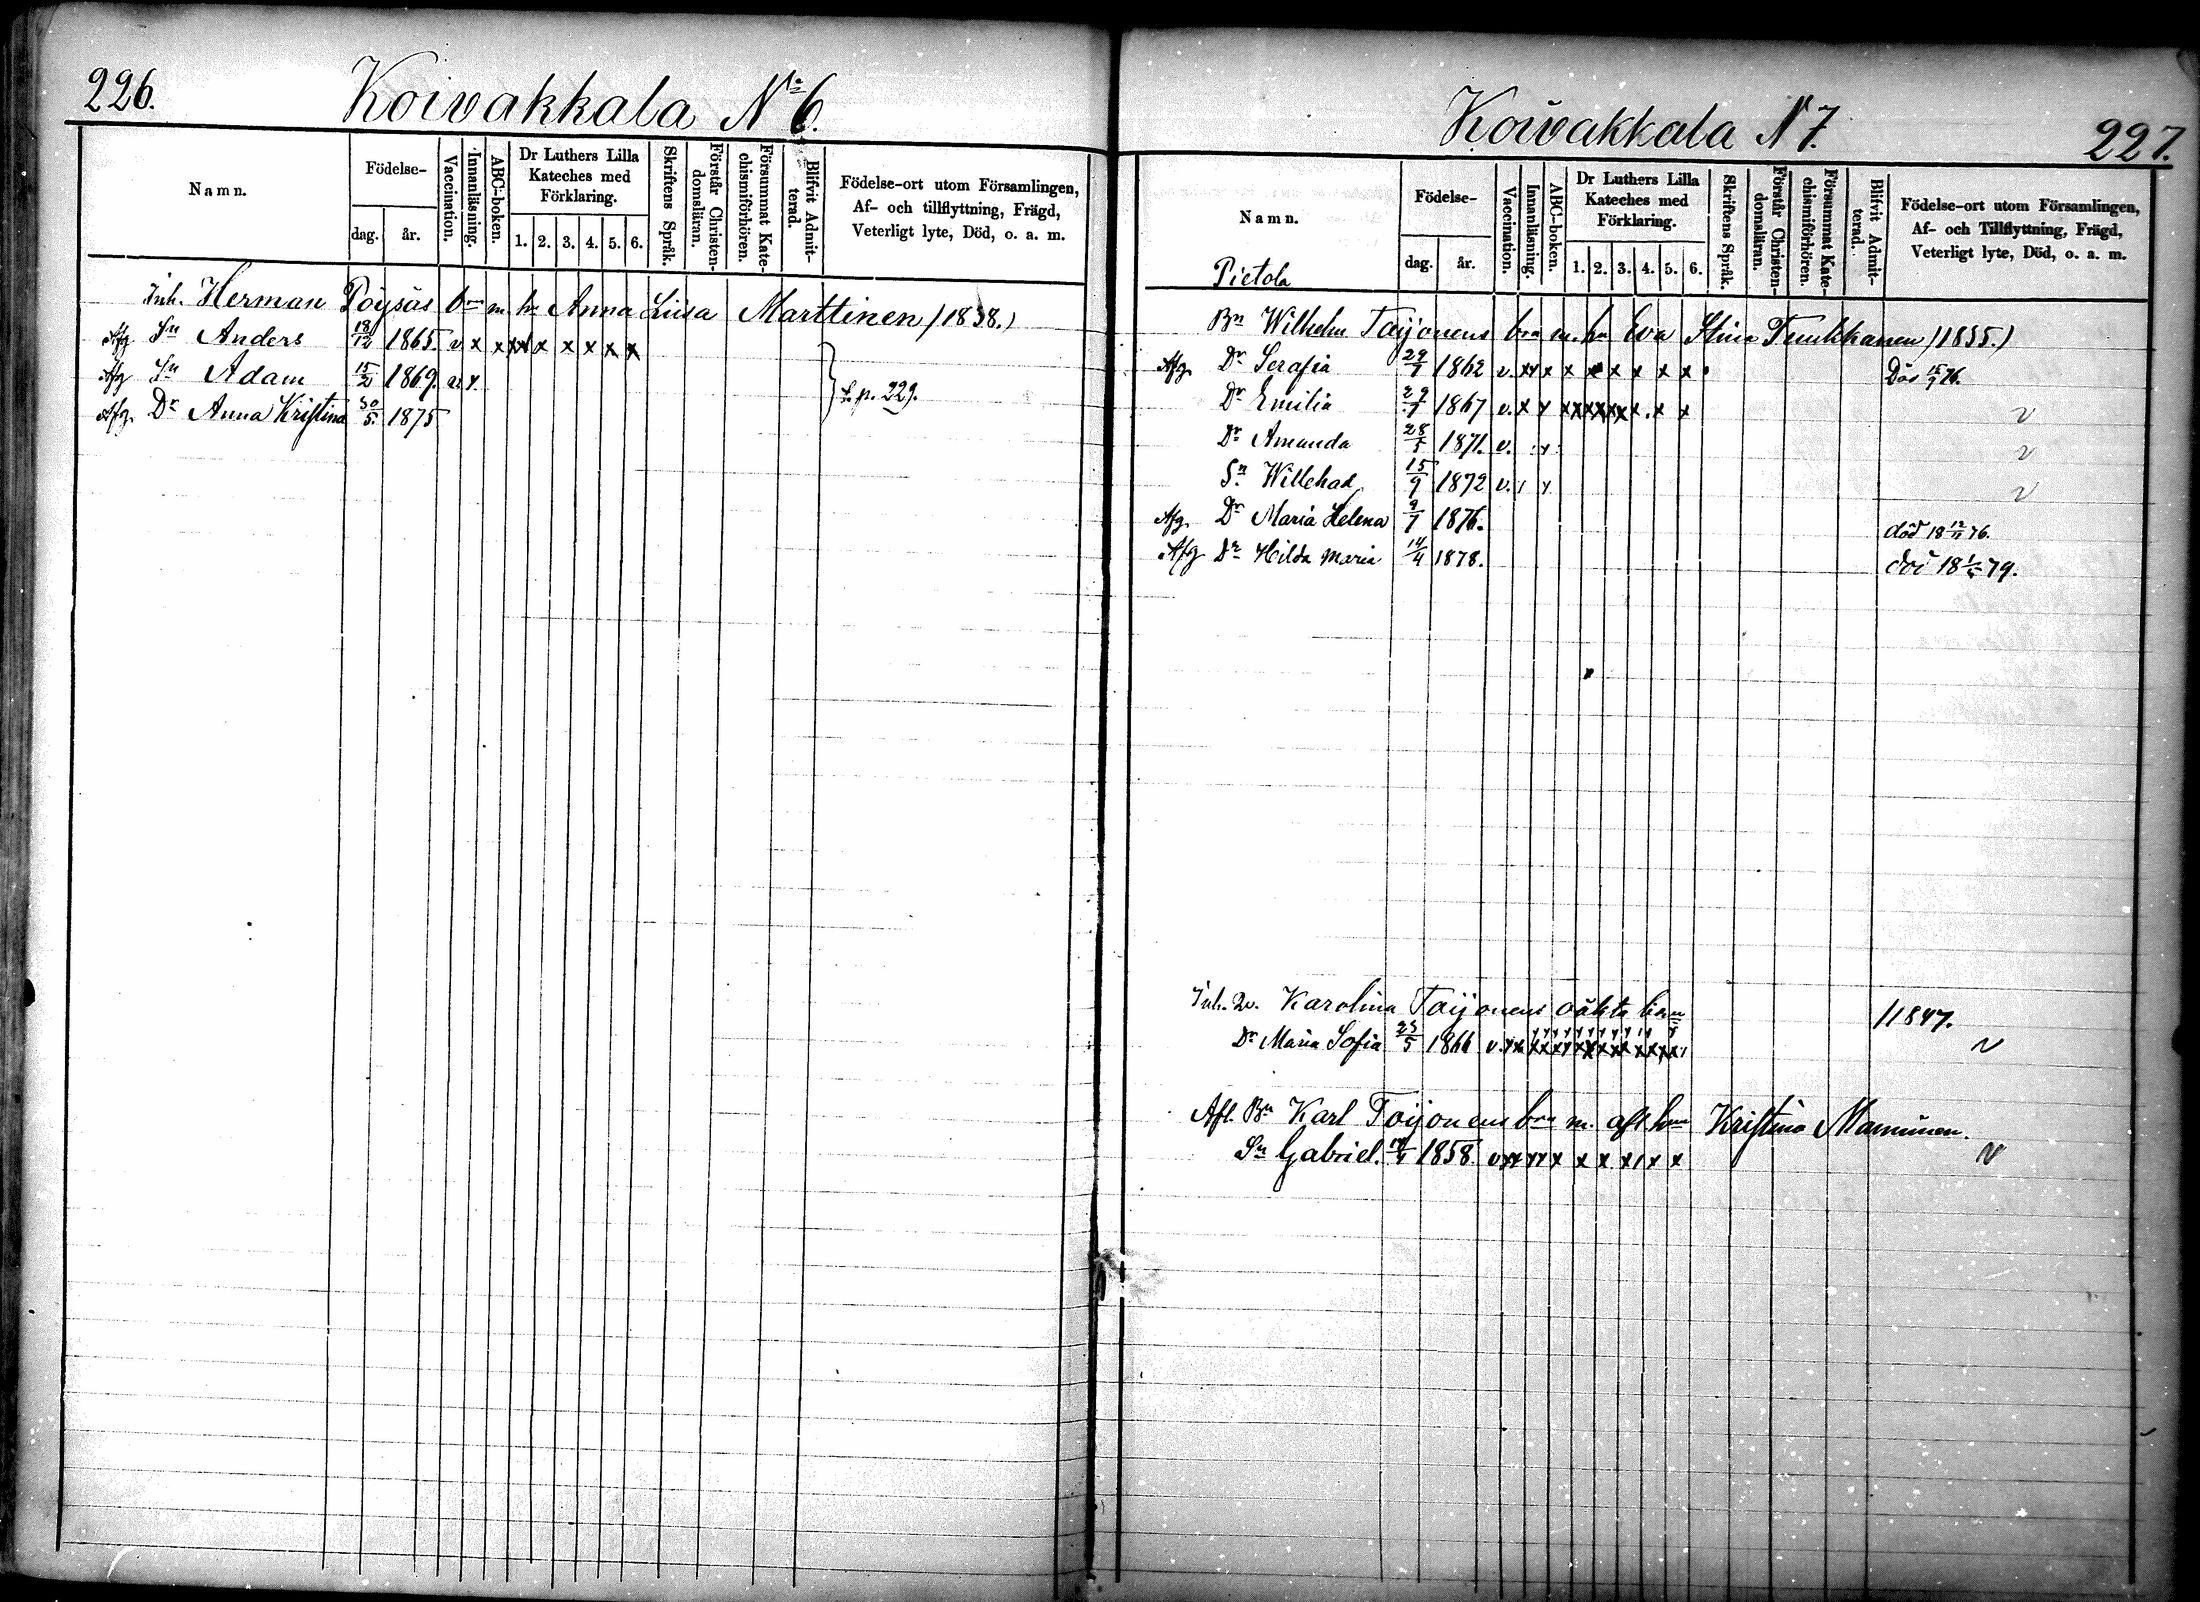 226.
Koivakkala Nº 6.
Namn.
Födelse-
dag. år.
Vaccination.
Innanläsning.
ABC-boken.
Dr Luthers Lilla
Kateches med
Förklaring.
1. 2. 3. 4. 5. 6.
Skriftens Språk.
Förstår Christen-
domsläran.
Försummat Kate-
chismiförhören.
Blifvit Admit-
terad.
Födelse-ort utom Församlingen,
Af- och tillflyttning, Frägd,
Veterligt lyte, Död, o. a. m.
Inh. Herman Pöysäs bn m. h. Anna Liisa Marttinen (1838.)
Afg Sn Anders 18/12 1865. v x x x x x x x x x
Afg Sn Adam 15/2 1869. v x
Afg. Dr Anna Kristina 30/5. 1875
p. 229.
Koivakkala N 7.
227.
Namn.
Pietola
Födelse-
dag. år.
Vaccination.
Innanläsning.
ABC-boken.
Dr Luthers Lilla
Kateches med
Förklaring.
1. 2. 3. 4. 5. 6.
Skriftens Språk.
Förstår Christen-
domsläran.
Försummat Kate-
chismiförhören.
Blifvit Admit-
terad.
Födelse-ort utom Församlingen,
Af- och Tillflyttning, Frägd,
Veterligt lyte, Död, o. a. m.
Bn Wilhelm Toijonens bn m. h. Eva Stina (1835.)
Afg. Dr Serafia 29/7 1862 v. x x x x x x x x x Död 15/9 76.
Dr Emilia 29/7 1867 v. x x x x x x x x x v
Dr Amanda 28/5 1871. v. x v
Sn Willehad 15/9 1872 v. x v
Afg. Dr Maria Helena 9/7 1876. död 18 12/11 76.
Afg Dr Hilda Maria 14/4 1878. död 18 79.
Inh. Karolina Toijonens oäkta barn (1847.
Dr Maria Sofia 23/5 1866 v. x x x x x x x x v
Afl. Bn Karl Toijonens bn m. afl. hu Kristina Mamninen.
Sn Gabriel. 1858. v x x x x x x x x v